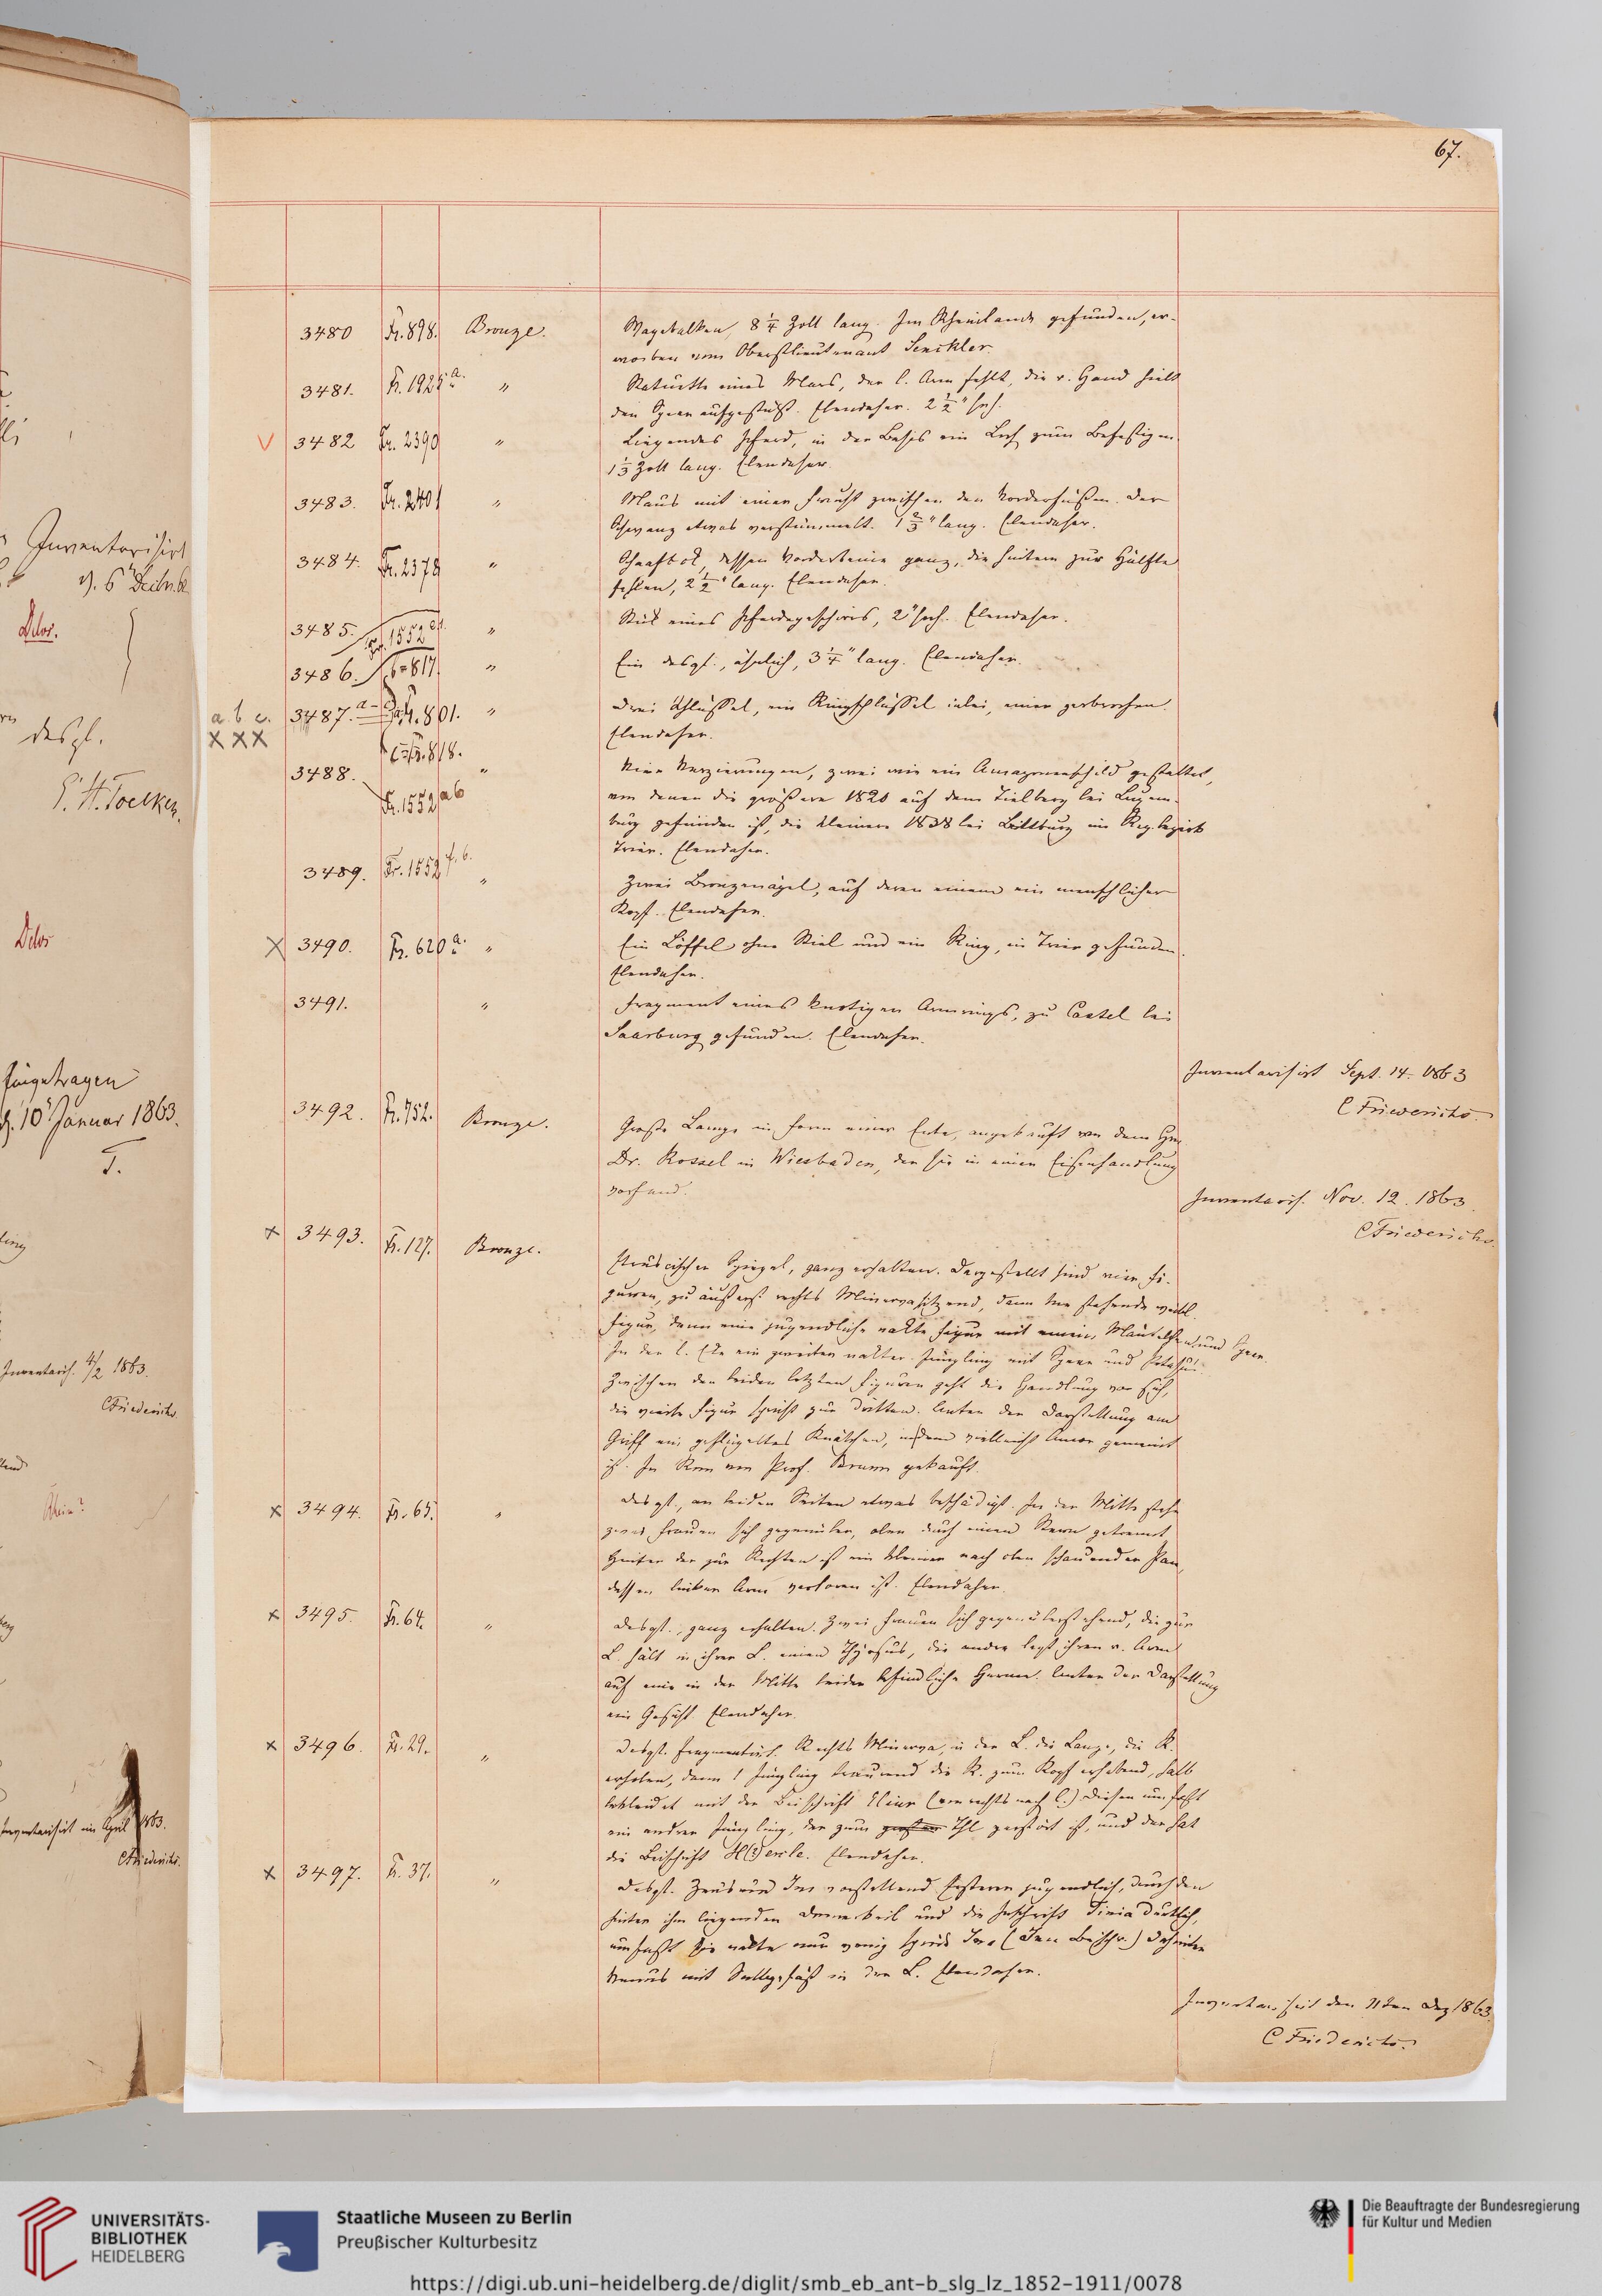 67.
3480 Fr. 898. Bronze. Wagebalken, 8 1/4 Zoll lang. Im Rheinlande gefunden, er-
worben vom Oberstlieutenant Senckler.
3481. Fr. 1925 a. " Statuette eines Mars, der l. Arm fehlt, die r. Hand hielt
den Speer aufgestützt. Ebendaher. 2 1/2" hoch.
V 3482 Fr. 2390 " Liegendes Pferd, in der Basis ein Loch zum Befestigen.
1 1/3 Zoll lang. Ebendaher.
3483. Fr. 2401 " Maus mit einer Frucht zwischen den Vorderfüßen. Der
Schwanz etwas verstümmelt. 1 2/3" lang. Ebendaher.
3484. Fr. 2378 " Schaafbok, dessen Vorderbeine ganz, die hintern zur Hälfte
fehlen, 2 1/2" lang. Ebendaher.
3485. Fr. 1552 " Stük eines Pferdegeschirrs, 2" hoch. Ebendaher.
3486. 817. " Ein desgl., ähnlich, 3 1/4" lang. Ebendaher.
a b c. 3487. a-c Fr. 801. " Drei Schlüssel, ein Ringschlüssel dabei, einer zerbrochen.
X X X Ebendaher.
c = Fr. 818.
3488. " Vier Verzierungen, zwei wie ein Amazonenschild gestaltet,
Fr. 1552 ab von denen die größere 1820 auf dem Titelberg bei Luxem-
burg gefunden ist, die kleinere 1838 bei Bittburg im Reg.bezirk
Trier. Ebendaher.
3489. Fr. 1552 f. 6. " Zwei Bronzenägel, auf deren einem ein menschlicher
Kopf. Ebendaher.
X 3490. Fr. 620 a. " Ein Löffel ohne Stiel und ein Ring, in Trier gefunden.
Ebendaher.
3491. " Fragment eines knotigen Armrings, zu Castel bei
Saarburg gefunden. Ebendaher.
Inventarisirt Sept. 14. 1863
C Friederichs.
3492. Fr. 752. Bronze. Große Lampe in Form einer Ente, angekauft von dem Hrn.
Dr. Rossel in Wiesbaden, der sie in einer Eisenhandlung
vorfand.
Inventaris. Nov. 12. 1863.
C Friederichs.
X 3493. Fr. 127. Bronze. Etruscischer Spiegel, ganz erhalten. Dargestellt sind vier Fi-
guren, zu äußerst rechts Minerva sitzend, dann eine stehende weibl.
Figur, dann eine jugendliche nakte Figur mit einem Mäntelchen und Speer.
In der l. Ecke ein zweiter nakter Jüngling mit Speer und
Zwischen den beiden letzten Figuren geht die Handlung vor sich,
die vierte Figur spricht zur dritten. Unter der Darstellung am
Griff ein geflügeltes Knäbchen, indem vielleicht Amor gemeint
ist. In Rom von Prof. Brunn gekauft.
X 3494. Fr. 65. " Desgl., an beiden Seiten etwas beschädigt. In der Mitte stehn
zwei Frauen sich gegenüber, oben durch einen Stern getrennt.
Hinter der zur Rechten ist ein kleiner nach oben schauender Pan,
dessen linker Arm verloren ist. Ebendaher.
X 3495. Fr. 64. " Desgl., ganz erhalten. Zwei Frauen sich gegenüberstehend, die zur
L. hält in ihrer L. einen Thyrsus, die andre legt ihren r. Arm
auf eine in der Mitte beider befindliche Herme. Unter der Darstellung
ein Gesicht. Ebendaher.
X 3496. Fr. 29. " Desgl. fragmentirt. Rechts Minerva, in der L. die Lanze, die R.
erhoben, dann 1 Jüngling trauernd die R. zum Kopf erhebend, halb
bekleidet mit der Beischrift (von rechts nach l.) Diesen umfaßt
ein andrer Jüngling, der zum Thl zerstört ist, und der hat
die Beischrift H(?)ercle. Ebendaher.
X 3497. Fr. 37. " Desgl. Zeus und Juno vorstellend. Ersterer jugendlich, durch den
hinter ihm liegenden Donnerkeil und die Inschrift Tinia deutlich,
umfaßt die nakte nur wenig Juno Beischr.) Dahinter
Venus mit Salbgefäß in der L. Ebendaher.
Inventarisirt den 11ten Dez 1863.
C Friederichs.
Inventarisirt
d. 6
Delos.
desgl.
E. H. Toelken.
Delos
Eingetragen
d. 10 Januar 1863.
T.
Inventaris. 4/2 1863.
C Friederichs.
Rhein?
Inventarisirt im April 1863.
C Friederichs.
UNIVERSITÄTS-
BIBLIOTHEK
HEIDELBERG
Staatliche Museen zu Berlin
Preußischer Kulturbesitz
Die Beauftragte der Bundesregierung
für Kultur und Medien
https://digi.ub.uni-heidelberg.de/diglit/smb_eb_ant-b_slg_lz_1852-1911/0078